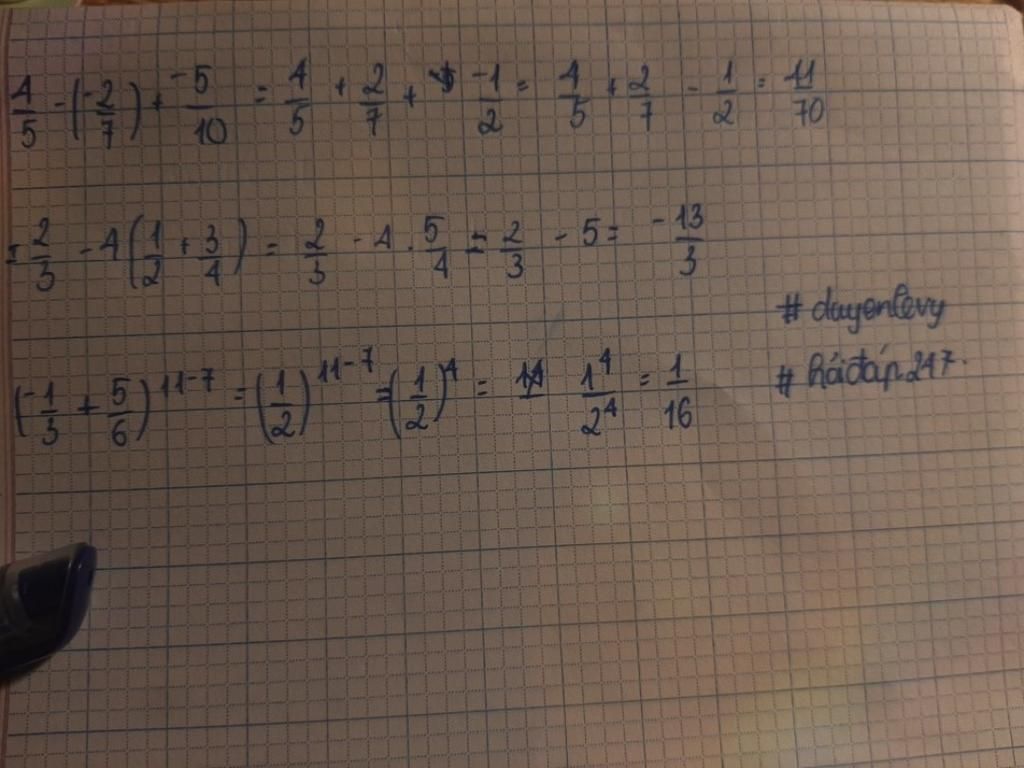 4/5 - (-2/7) + -5/10 = 4/5 + 2/7 + -1/2 = 4/5 + 2/7 - 1/2 = 11/70
= 2/3 - 4(1/2 + 3/4) = 2/3 - 4 . 5/4 = 2/3 - 5 = -13/3
# duyenlevy
(-1/3 + 5/6)^11-7 = (1/2)^11-7 = (1/2)^4 = 1^4/2^4 = 1/16
# hỏiđáp247.